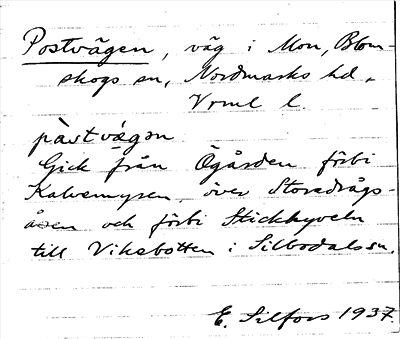 Postvägen, väg i Mon, Blom-
skogs sn, Nordmarks hd,
Vrml l.
pàstvægan
Gick från Ögården förbi
Kalvemyren, över Storedrågs-
åsen och förbi Stickhyveln
till Viksbotten i Silbodals sn.
E. Silfors 1937.